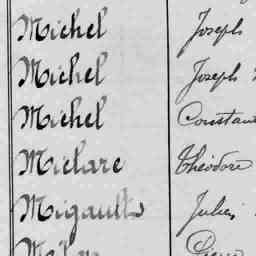 Michel Joseph
Michel Joseph
Michel Constant
Miclare Théodore
Migault Jules